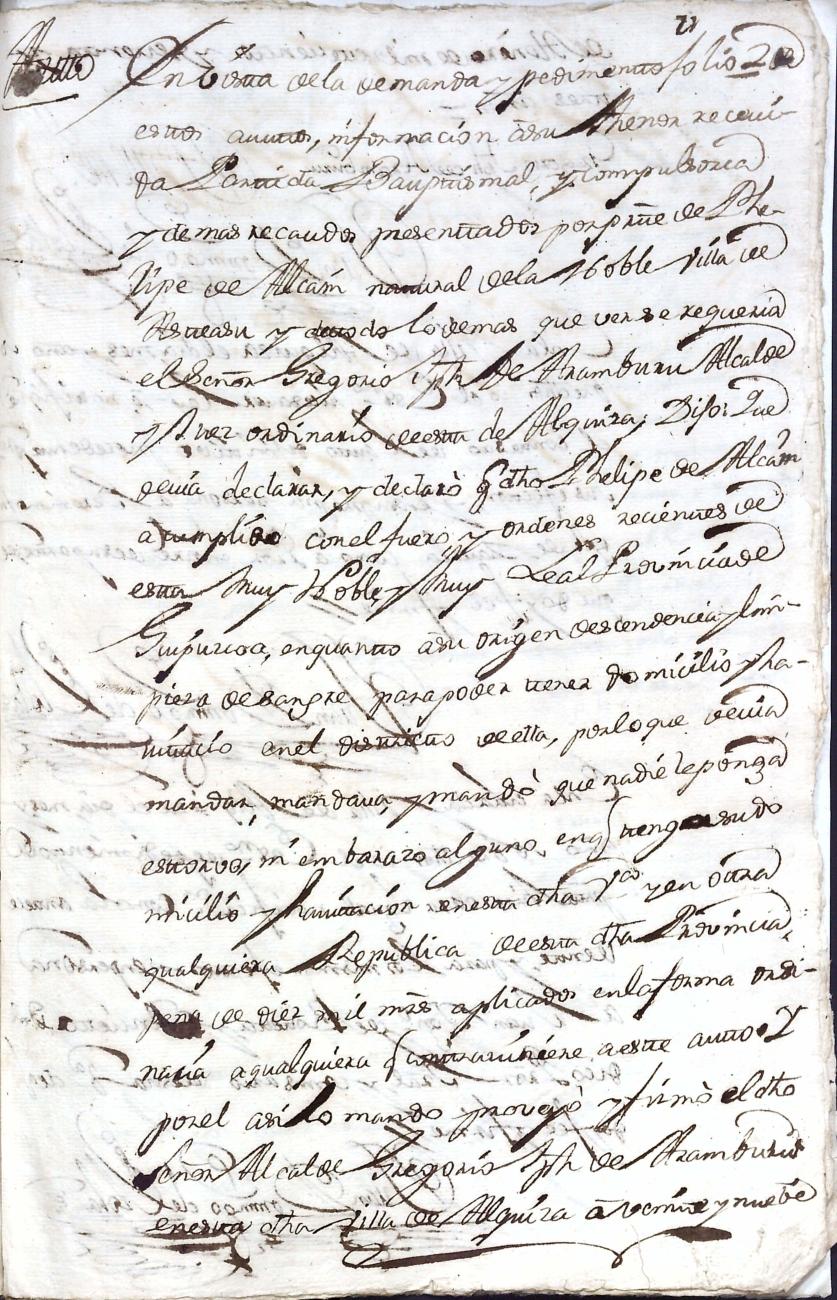 71
Autto
En Vista dela demanda y pedimentto folio 2 de
estos auttos, información âsu thenor recevi-
da Partida Bauptismal, y Compulsoria
y demas recaudos presenttados por partte de Phe-
lipe de Alcain natural dela Noble Villa de
Asteasu y de todo lo demas que verse requeria
el Señor Gregorio Jph de Aramburu Alcalde
y Juez ordinario de esta de Alquiza; Dijo: Que
devia declarar, y declarò q dho Phelipe de Alcain
a cumplido con el fuero, y ordenes recientes de
esta Muy Noble, y Muy Leal Provincia de
Guipuzcoa, en quanto âsu origen descendencia y lim-
pieza de sangre para poder tener domicilio y ha-
vitacio en el districto de ella, por lo que devia
mandar, mandava, y mandò que nadie le ponga
estorvo, ni embarazo alguno, en q tenga su do
micilio y havitacion en esta dha Va y en otra
qualquiera Republica de esta dha Provincia,
pena de diez mil mrs aplicados en la forma ordi-
naria a qualquiera q contraviniere a este autto. Y
por el asi lo mando proveyò y firmò el dho
Señor Alcalde Gregorio Jph de Aramburu
en esta dha Villa de Alquiza â veinte y nuebe